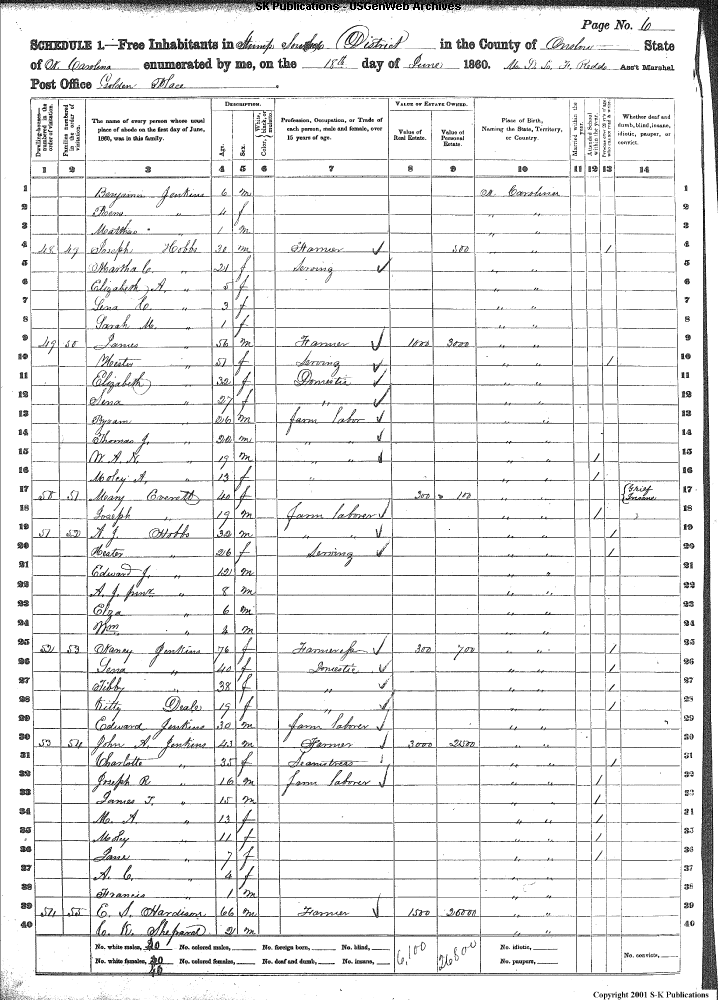 SK Publications - USGenWeb Archives
Page No. 6
SCHEDULE 1.—Free Inhabitants in Stump Sound (District in the County of Onslow State
of N. Carolina enumerated by me, on the 18th day of June 1860. Ass't Marshal
Post Office Golden Place.
DESCRIPTION. VALUE OF ESTATE OWNED.
Dwelling-houses numbered in the order of visitation. Families numbered in the order of visitation. The name of every person whose usual place of abode on the first day of June, 1860, was in this family. Age. Sex. Color, White, black, or mulatto. Profession, Occupation, or Trade of each person, male and female, over 15 years of age. Value of Real Estate. Value of Personal Estate. Place of Birth, Naming the State, Territory, or Country. Married within the year. Attended School within the year. Whether deaf and dumb, blind, insane, idiotic, pauper, or convict.
1 2 3 4 5 6 7 8 9 10 11 12 13 14
1 Benjamin Jenkins 6 m N. Carolina 1
2 4 f " " 2
3 " 1 m " " 3
4 48 49 Joseph Hobbs 30 m Farmer 500 " " / 4
5 Martha C. " 21 f Serving " " 5
6 Elizabeth A. " 5 f " " 6
7 Sena C. " 3 f " " 7
8 Sarah M. " 1 f " " 8
9 49 50 James " 56 m Farmer 1000 3000 " " 9
10 Hester " 51 f Serving " " / 10
11 Elizabeth " 32 f Domestic " " 11
12 Sena " 27 f " " " 12
13 Byram " 26 m farm labor " " 13
14 Thomas J. " 20 m " " " " 14
15 W. A. H. " 19 m " " " / 15
16 Moley A. " 13 f " " / 16
17 50 51 Meary Everett 40 f 300 100 " " Grief Insane 17
18 Joseph " 19 m farm laborer " " / 18
19 51 52 A. J. Hobbs 32 m " " " " / 19
20 Hester " 26 f Serving " " / 20
21 Edward J. " 12 m " " 21
22 A. J. junr. " 8 m " " 22
23 Elza " 6 m " " 23
24 Wm. " 4 m " " 24
25 52 53 Nancy Jenkins 76 f 300 700 " " / 25
26 Sena " 40 f Domestic " " / 26
27 Tibby " 38 f " " " / 27
28 Kitty Deale 19 f " " " / 28
29 Edward Jenkins 30 m farm laborer " " 29
30 53 54 John A. Jenkins 43 m Farmer 3000 " " 30
31 Charlotte " 35 f Seamstress " " / 31
32 Joseph R " 16 m farm laborer " " / 32
33 James T. " 15 m " " / 33
34 M. A. " 13 f " " / 34
35 Moley " 11 f " " / 35
36 Jane " 7 f " " / 36
37 A. C. " 4 f " " 37
38 Francis " 1 m " " 38
39 54 55 E. S. Hardison 66 m Farmer 1500 " " 39
40 C. K. Shepard 21 m " " 40
No. white males, 20 No. colored males, No. foreign born, No. blind, 6,100 26800 No. idiotic,
No. white females, 20 No. colored females, No. deaf and dumb, No. insane, No. paupers, No. convicts,
40
Copyright 2001 S-K Publications